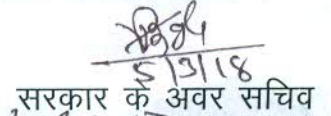 5/3/18
सरकार के अवर सचिव